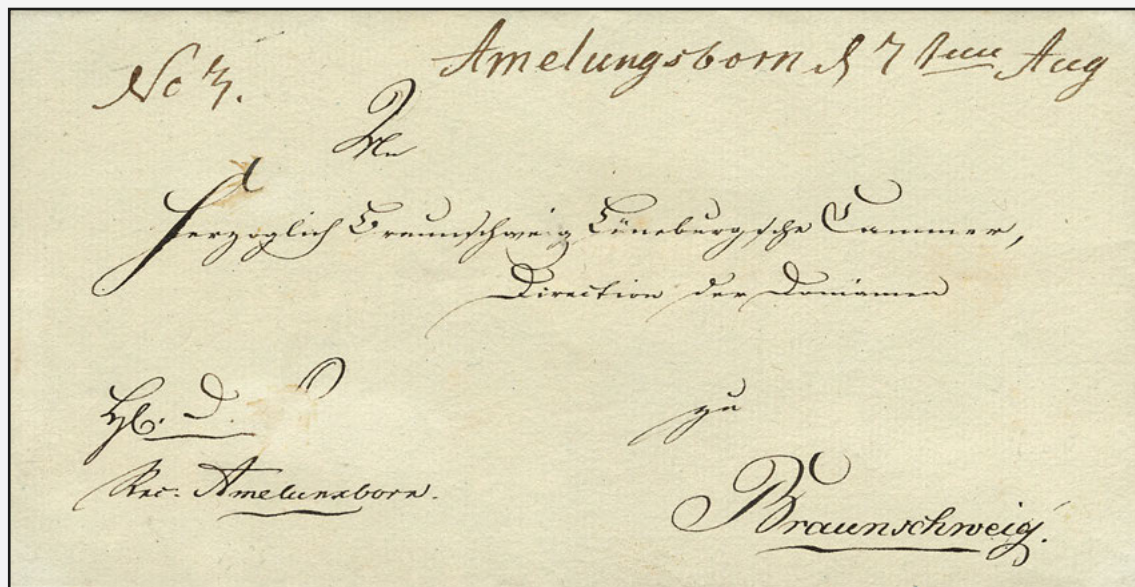 No 3. Amelungsborn d 7ten Aug
An
Herzoglich Braunschweig Lüneburgsche Cammer,
Direction der Domainen
D.
zu
Rec: Amelunxborn.
Braunschweig.